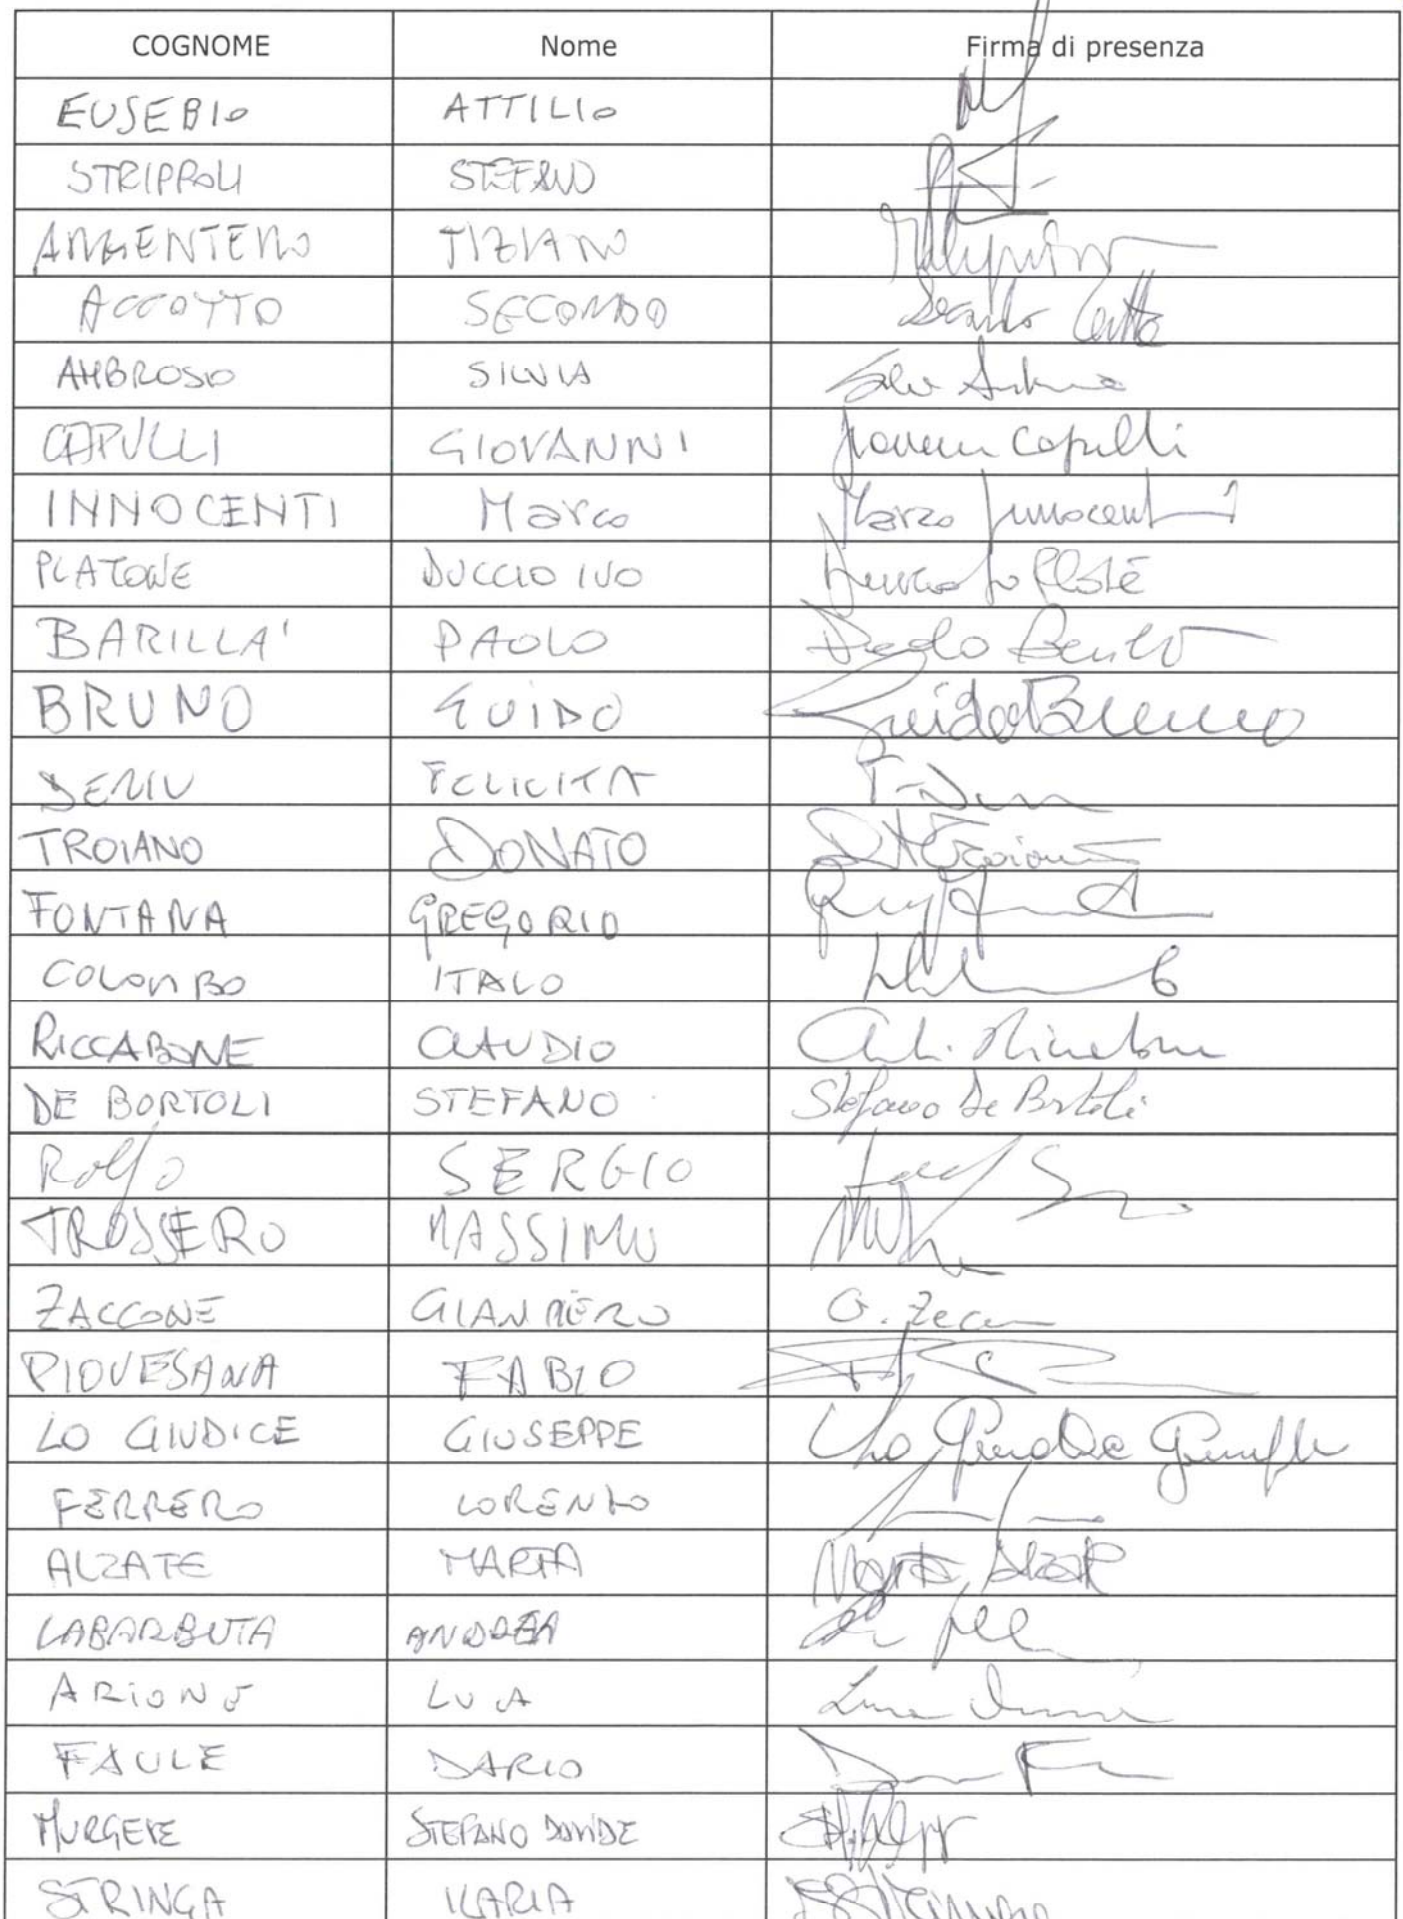 COGNOME Nome Firma di presenza
EUSEBIO ATTILIO
STRIPPOLI STEFANO
ARGENTERO TIZIANO
ACCOTTO SECONDO
AMBROSIO SILVIA
CAPULLI GIOVANNI Giovanni Capulli
INNOCENTI Marco Marco Innocenti
PLATONE DUCCIO IVO
BARILLA' PAOLO Paolo
BRUNO GUIDO Guido Bruno
DERIU FELICITA
TROIANO DONATO Troiano
FONTANA GREGORIO
COLOMBO ITALO
RICCABONE CLAUDIO
DE BORTOLI STEFANO Stefano De Bortoli
Rolfo SERGIO
TROSSERO MASSIMO
ZACCONE GIANPIERO G.
PIOVESANA FABIO
LO GIUDICE GIUSEPPE Lo Giudice Giuseppe
FERRERO LORENZO
ALZATE MARTA Marta Alzate
LABARBUTA ANDREA
ARIONE LUCA Luca
FAULE DARIO
MURGESE STEFANO DAVIDE
STRINGA ILARIA